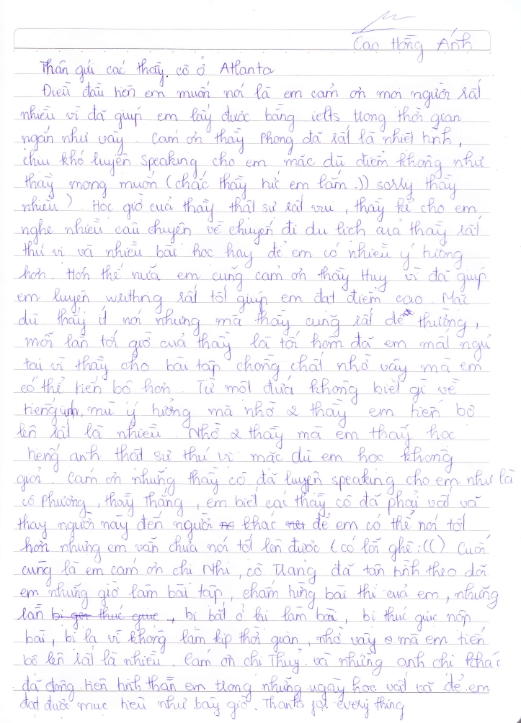 Cao Hồng Ánh
Thân gửi các thầy, cô ở Atlanta
Điều đầu tiên em muốn nói là em cảm ơn mọi người rất
nhiều vì đã giúp em lấy được bằng ielts trong thời gian
ngắn như vậy. Cảm ơn thầy Phong đã rất là nhiệt tình,
chịu khó luyện speaking cho em mặc dù điểm không như
thầy mong muốn (chắc thầy hư em lắm :)) sorry thầy
nhiều) Học giờ của thầy thật sự rất vui, thầy kể cho em
nghe nhiều câu chuyện về chuyến đi du lịch của thầy rất
thú vị và nhiều bài học hay để em có nhiều ý tưởng
hơn. Hơn thế nữa em cũng cảm ơn thầy Huy vì đã giúp
em luyện writing rất tốt giúp em đạt điểm cao. Mặc
dù thầy ít nói nhưng mà thầy cũng rất dễ thương,
mỗi lần tới giờ của thầy là tối hôm đó em mất ngủ
tại vì thầy cho bài tập chồng chất nhờ vậy mà em
có thể tiến bộ hơn. Từ một đứa không biết gì về
tiếng anh, mù ý tưởng mà nhờ 2 thầy em tiến bộ
lên rất là nhiều. Nhờ 2 thầy mà em thấy học
tiếng anh thật sự thú vị mặc dù em học không
giỏi. Cảm ơn những thầy cô đã luyện speaking cho em như là
cô Phương, thầy Thắng, em biết các thầy, cô đã phải vất vả
thay người này đến người khác để em có thể nói tốt
hơn nhưng em vẫn chưa nói tốt lên được (có lỗi ghê :(( ) Cuối
cùng là em cảm ơn chị Nhi, cô Trang đã tận tình theo dõi
em những giờ làm bài tập, chấm từng bài thi của em, những
lần bị gọi thúc giục, bị bắt ở lại làm bài, bị thúc giục nộp
bài, bị la vì không làm kịp thời gian, nhờ vậy mà em tiến
bộ lên rất là nhiều. Cảm ơn chị Thuỷ và những anh chị khác
đã động viên tinh thần em trong những ngày học vất vả để em
đạt được mục tiêu như bây giờ. Thanks for everything